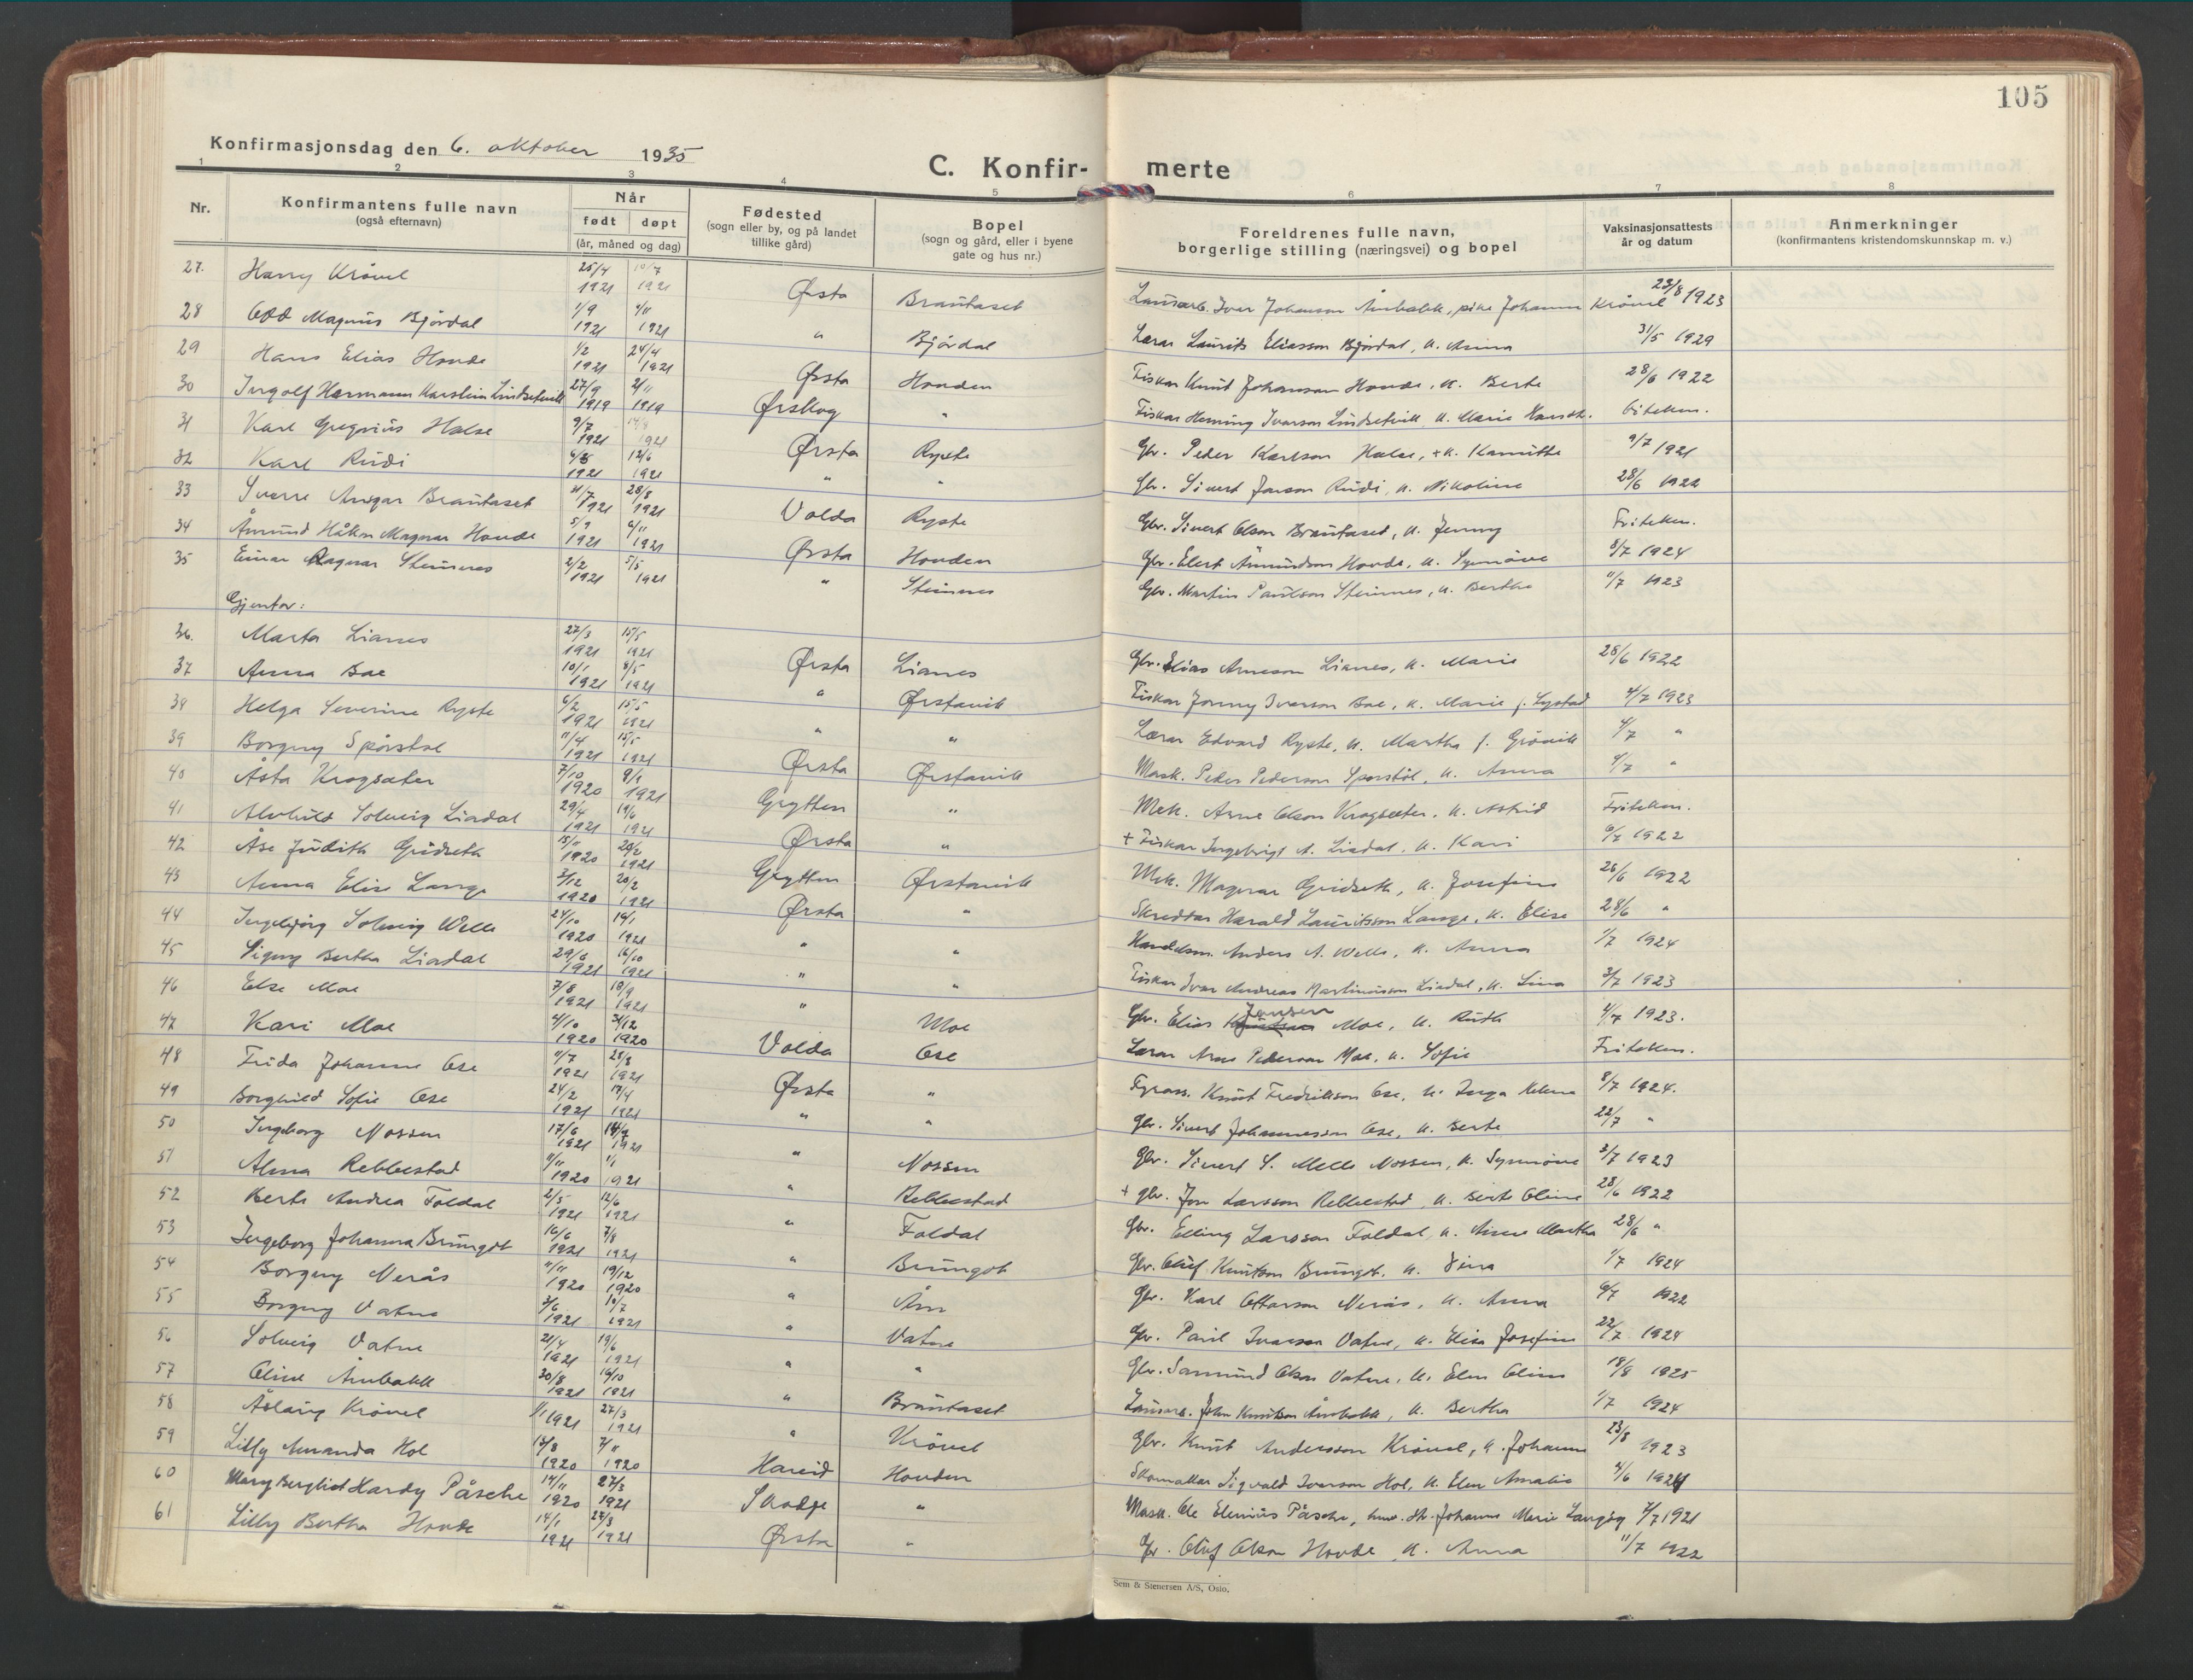 105
Konfirmasjonsdag den 6. oktober 1935
C. Konfir- merte
1 2 3 4 5 6 7 8
Nr. Konfirmantens fulle navn (også efternavn) Når født døpt (år, måned og dag) Fødested (sogn eller by, og på landet tillike gård) Bopel (sogn og gård, eller i byene gate og hus nr.) Foreldrenes fulle navn, borgerlige stilling (næringsvei) og bopel Vaksinasjonsattests år og datum Anmerkninger (konfirmantens kristendomskunnskap m. v.)
27. Harry Krøvel 25/4 1921 10/7 1921 Ørsta Brautaset Lausarb. Ivar Johanson Åmbakk, pike Johanna Krøvel 23/8 1923
28 Odd Magnus Bjørdal 1/9 1921 4/11 1921 " Bjørdal Lærar Laurits Eliasson Bjørdal, k. Anna 31/5 1929
29 Hans Elias Hovde 1/2 1921 24/4 1921 Ørsta Hovden Fiskar Knut Johanson Hovde, k. Berte 28/6 1922
30 Ingolf Hermann Karstein Lindsetvik 27/9 1919 2/11 1919 Ørskog " Fiskar Heming Ivarson Lindsetvik k. Marie
31 Karl Gregorius Halse 9/7 1921 14/8 1921 Ørsta Ryste Gbr. Peder Karlson Halse, + k. Kamitte 9/7 1921
32 Karl Rudi 4/5 1921 12/6 1921 " " Gbr. Sivert Jonson Rudi, k. Nikoline 28/6 1922
33 Sverre Ansgar Brautaset 21/7 1921 28/8 1921 Volda Ryste Gbr. Sivert Olson Brautaset, k. Jenny Friteken.
34 Åmund Håkon Magnar Hovde 5/9 1921 6/11 1921 Ørsta Hovden Gbr. Elert Åmundson Hovde, k. Synnøve 8/7 1924
35 Einar Ragnar Steinnes 2/2 1921 5/5 1921 " Steinnes Gbr. Martin Paulson Steinnes, k. Berthe 11/7 1923
Gjentor:
36. Marta Lianes 27/3 1921 15/5 1921 Ørsta Lianes Gbr. Elias Arneson Lianes, k. Marie 28/6 1922
37 Anna Boe 10/1 1921 8/5 1921 " Ørstavik Fiskar Jonny Ivarson Boe, k. Marie f. Systad 4/7 1923
38 Helga Severine Ryste 6/2 1921 15/5 1921 " " Lærar Edvard Ryste, k. Martha f. Grøvik 4/7 "
39 Borgny Sporstøl 11/4 1921 15/5 1921 Ørsta Ørstavik Mask. Peder Pederson Sporstøl, k. Anna 4/7 "
40 Åsta Krogsæter 7/10 1920 9/1 1921 Grytten " Mek. Arne Olson Krogsæter, k. Astrid Friteken.
41 Alvhild Solveig Liadal 29/4 1921 19/6 1921 Ørsta " + Fiskar Ingebrigt A. Liadal, k. Kari 6/7 1922
42 Åse Judith Gridseth 15/11 1920 20/2 1921 Grytten Ørstavik Mek. Magnar Gridseth, k. Josefine 26/6 1922
43 Anna Elise Lange 3/12 1920 20/2 1921 Ørsta " Skreddar Harald Lauritsson Lange, k. Elise 28/6 "
44 Ingebjørg Solveig Welle 24/10 1920 16/1 1921 " " Handelsm. Anders A. Welle, k. Anna 1/7 1924
45 Signy Bertha Liadal 29/6 1921 16/10 1921 " " Fiskar Ivar Andreas Martinusson Liadal, k. Lina 3/7 1923
46 Else Moe 7/8 1921 18/9 1921 " Moe Gbr. Elias Jensen Moe, k. Ruth 4/7 1923.
47 Kari Moe 4/10 1920 31/12 1920 Volda Ose Lærar Arne Pederson Moe, k. Sofie Friteken.
48 Frida Johanne Ose 11/7 1921 28/8 1921 Ørsta " Fyrass. Knut Fredrikson Ose, k. Inga Helene 8/7 1924.
49 Borghild Sofie Ose 24/2 1921 17/4 1921 " " Gbr. Sivert Johannesson Ose, k. Berte 22/7 "
50 Ingeborg Nossen 17/6 1921 1921 " Nossen Gbr. Sivert S. Melle Nossen, k. Synnøve 3/7 1923
51 Alma Rebbestad 11/11 1920 1/1 1921 " Rebbestad + gbr. Jon Larsson Rebbestad, k. Berte Oline 28/6 1922
52 Berte Andrea Foldal 2/5 1921 12/6 1921 " Foldal Gbr. Elling Larsson Foldal, k. Anne Martha 28/6 "
53 Ingeborg Johanna Brungot 16/6 1921 7/8 1921 " Brungot Gbr. Oluf Knutson Brungot, k. Sina 1/7 1924
54 Borgny Nerås 11/11 1920 19/12 1920 " Åm Gbr. Karl Ottarson Nerås, k. Anna 6/7 1922
55 Borgny Vatne 3/6 1921 10/7 1921 " Vatne Gbr. Paul Ivarson Vatne, k. Elisa Josefine 22/7 1924
56 Solveig Vatne 21/4 1921 19/6 1921 " " Gbr. Samund Olson Vatne, k. Elen Oline 18/8 1925
57 Oline Åmbakk 30/8 1921 16/10 1921 " Brautaset Lausarb. John Knutson Åmbakk, k. Bertha 1/7 1924
58 Åslaug Krøvel 1/1 1921 27/3 1921 " Krøvel Gbr. Knut Andersson Krøvel, k. Johanne 23/8 1923
59 Lilly Amanda Hol 13/8 1920 7/11 1920 Hareid Hovden Skomakar Sigvald Ivarson Hol, k. Elen Amalie 4/6 1924
60 Mary Bergliot Hardy Påsche 14/11 1920 27/3 1921 Skodje " Mask. Ole Elenius Påsche, Johanne Marie Langøy 7/7 1921
61 Lilly Bertha Hovde 14/1 1921 27/3 1921 Ørsta " Gbr. Oluf Olson Hovde, k. Anna 11/7 1922
Sem & Stenersen A/S, Oslo.